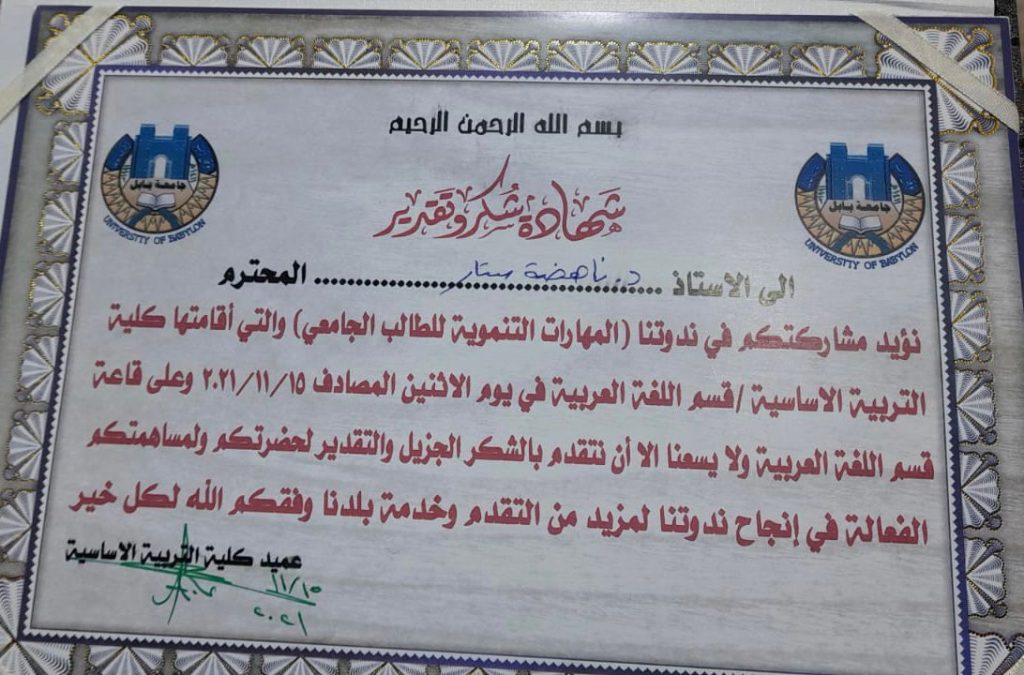 بسم الله الرحمن الرحيم
شهادة شكر وتقدير
جامعة بابل
UNIVERSITY OF BABYLON
جامعة بابل
UNIVERSITY OF BABYLON
الى الاستاذ ........ د. ناهضة ستار ........ المحترم
نؤيد مشاركتكم في ندوتنا (المهارات التنموية للطالب الجامعي) والتي أقامتها كلية
التربية الاساسية /قسم اللغة العربية في يوم الاثنين المصادف ٢٠٢١/١١/١٥ وعلى قاعة
قسم اللغة العربية ولا يسعنا الا أن نتقدم بالشكر الجزيل والتقدير لحضرتكم ولمساهمتكم
الفعالة في إنجاح ندوتنا لمزيد من التقدم وخدمة بلدنا وفقكم الله لكل خير
عميد كلية التربية الاساسية
١١/١٥
٢٠٢١